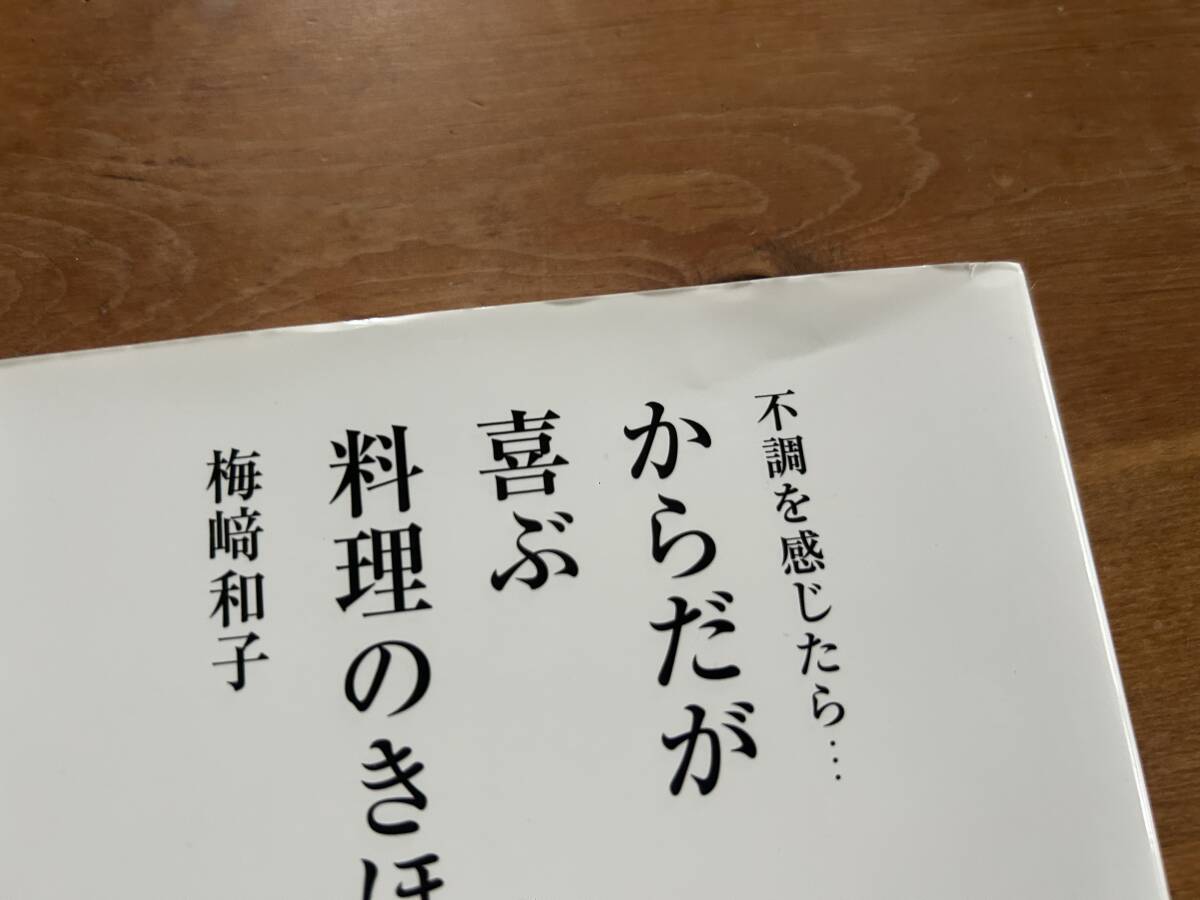 不調を感じたら…
からだが
喜ぶ
料理のきほ
梅﨑和子